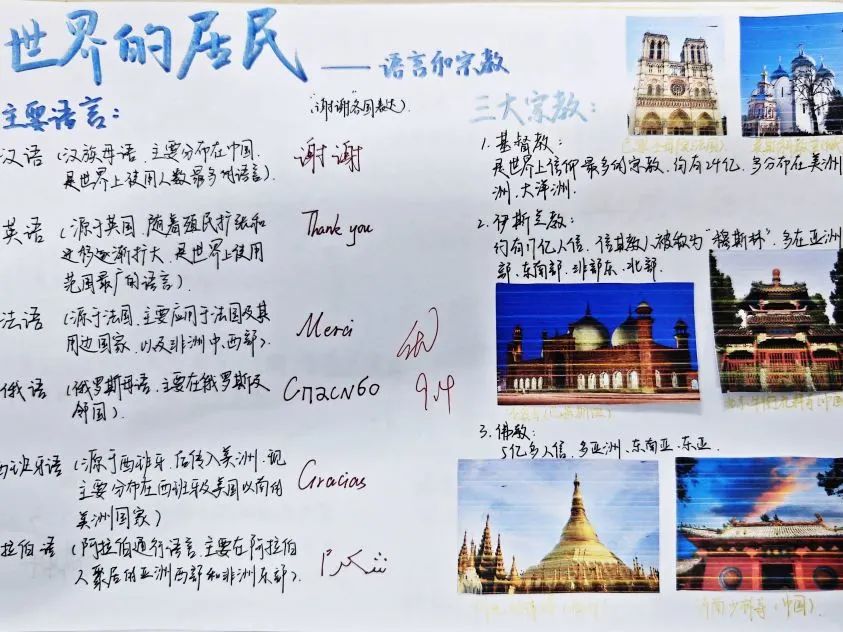 世界的居民
——语言和宗教
主要语言：
("谢谢"各国表达)
汉语 (汉族母语、主要分布在中国、
是世界上使用人数最多的语言)
谢谢
英语 (源于英国、随着殖民扩张和
迁移逐渐扩大、是世界上使用
范围最广的语言)
Thank you
法语 (源于法国、主要应用于法国及其
周边国家、以及非洲中、西部)
Merci
俄语 (俄罗斯母语、主要在俄罗斯及
邻国)
Спасибо
西班牙语 (源于西班牙、后传入美洲、现
主要分布在西班牙及美国以南的
美洲国家)
Gracias
拉伯语 (阿拉伯通行语言、主要在阿拉伯
人聚居的亚洲西部和非洲东部)
شكرا
优
9.14
三大宗教：
1. 基督教：
是世界上信仰最多的宗教、约有24亿、多分布在美洲
洲、大洋洲.
2. 伊斯兰教：
约有17亿人信、信其教人被称为"穆斯林"、多在亚洲
部、东南部、非部东、北部.
3. 佛教：
5亿多人信、多亚洲、东南亚、东亚.
河南少林寺(中国)